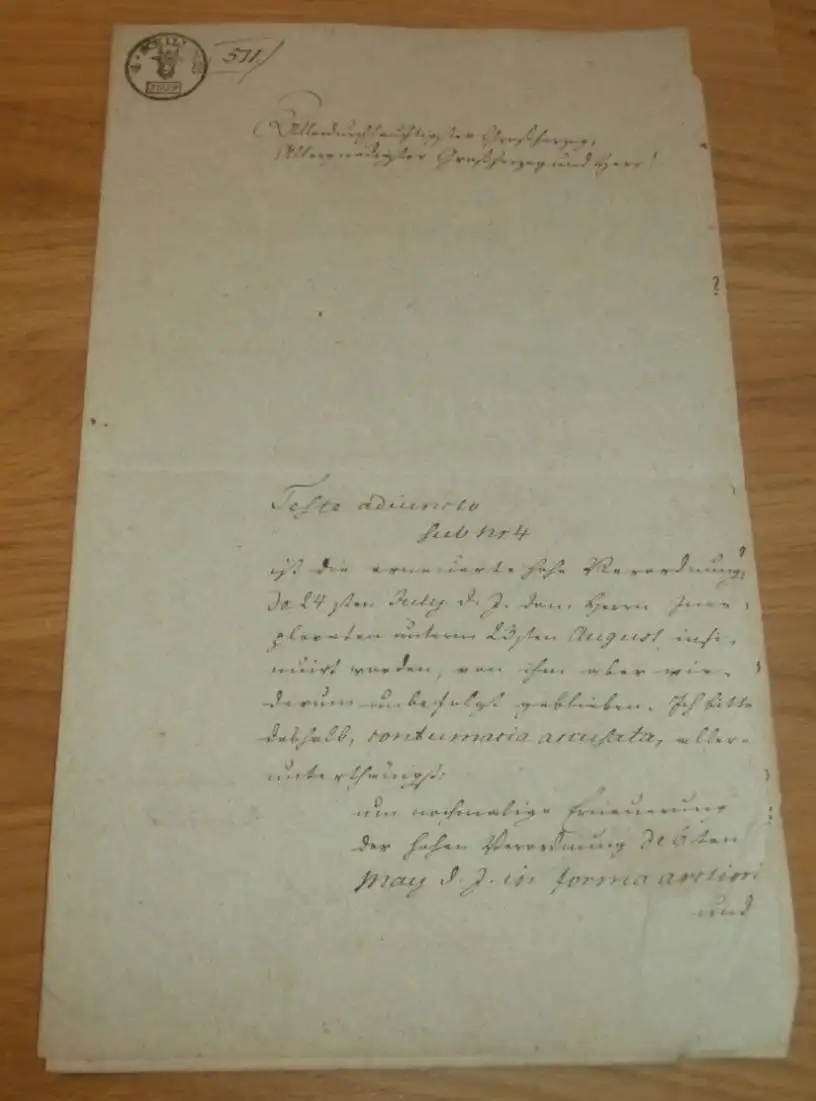 4 · SCHILL
511
Allerdurchlauchtigster Großherzog,
Allergnädigster Großherzog und Herr!
Teste adiuncto
sub Nr 4
ist die erneuerte hohe Verordnung
do 24sten July d. J. dem Herrn Im-
ploraten unterm 23sten August insi-
nuirt worden, von ihm aber wie-
derum unbefolgt geblieben. Ich bitte
deshalb, contumacia accusata, aller-
unterthänigst:
um nochmalige Erneuerung
der hohen Verordnung de 6ten
May d. J. in forma arctiori
und